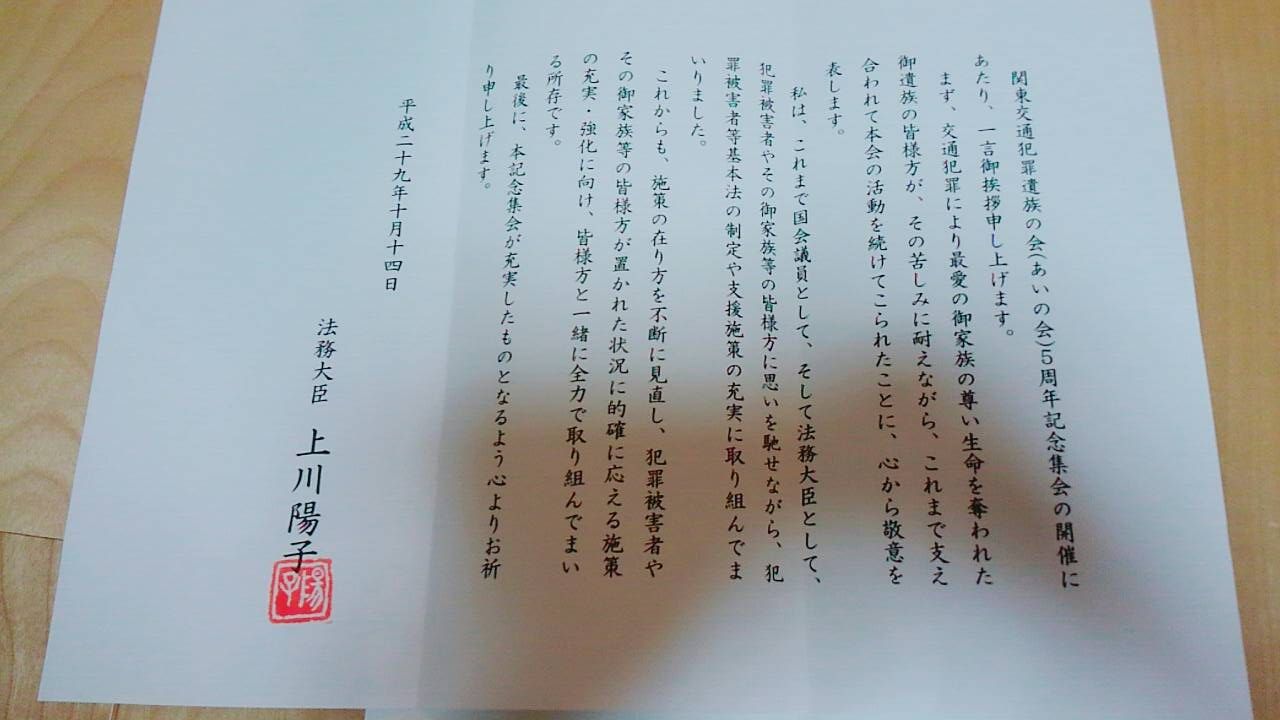 関東交通犯罪遺族の会(あいの会)5周年記念集会の開催に
あたり、一言御挨拶申し上げます。
まず、交通犯罪により最愛の御家族の尊い生命を奪われた
御遺族の皆様方が、その苦しみに耐えながら、これまで支え
合われて本会の活動を続けてこられたことに、心から敬意を
表します。
私は、これまで国会議員として、そして法務大臣として、
犯罪被害者やその御家族等の皆様方に思いを馳せながら、犯
罪被害者等基本法の制定や支援施策の充実に取り組んでま
いりました。
これからも、施策の在り方を不断に見直し、犯罪被害者や
その御家族等の皆様方が置かれた状況に的確に応える施策
の充実・強化に向け、皆様方と一緒に全力で取り組んでまい
る所存です。
最後に、本記念集会が充実したものとなるよう心よりお祈
り申し上げます。
平成二十九年十月十四日
法務大臣 上川陽子
陽子